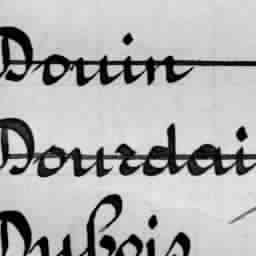 Douin
Dourdai
Dubois